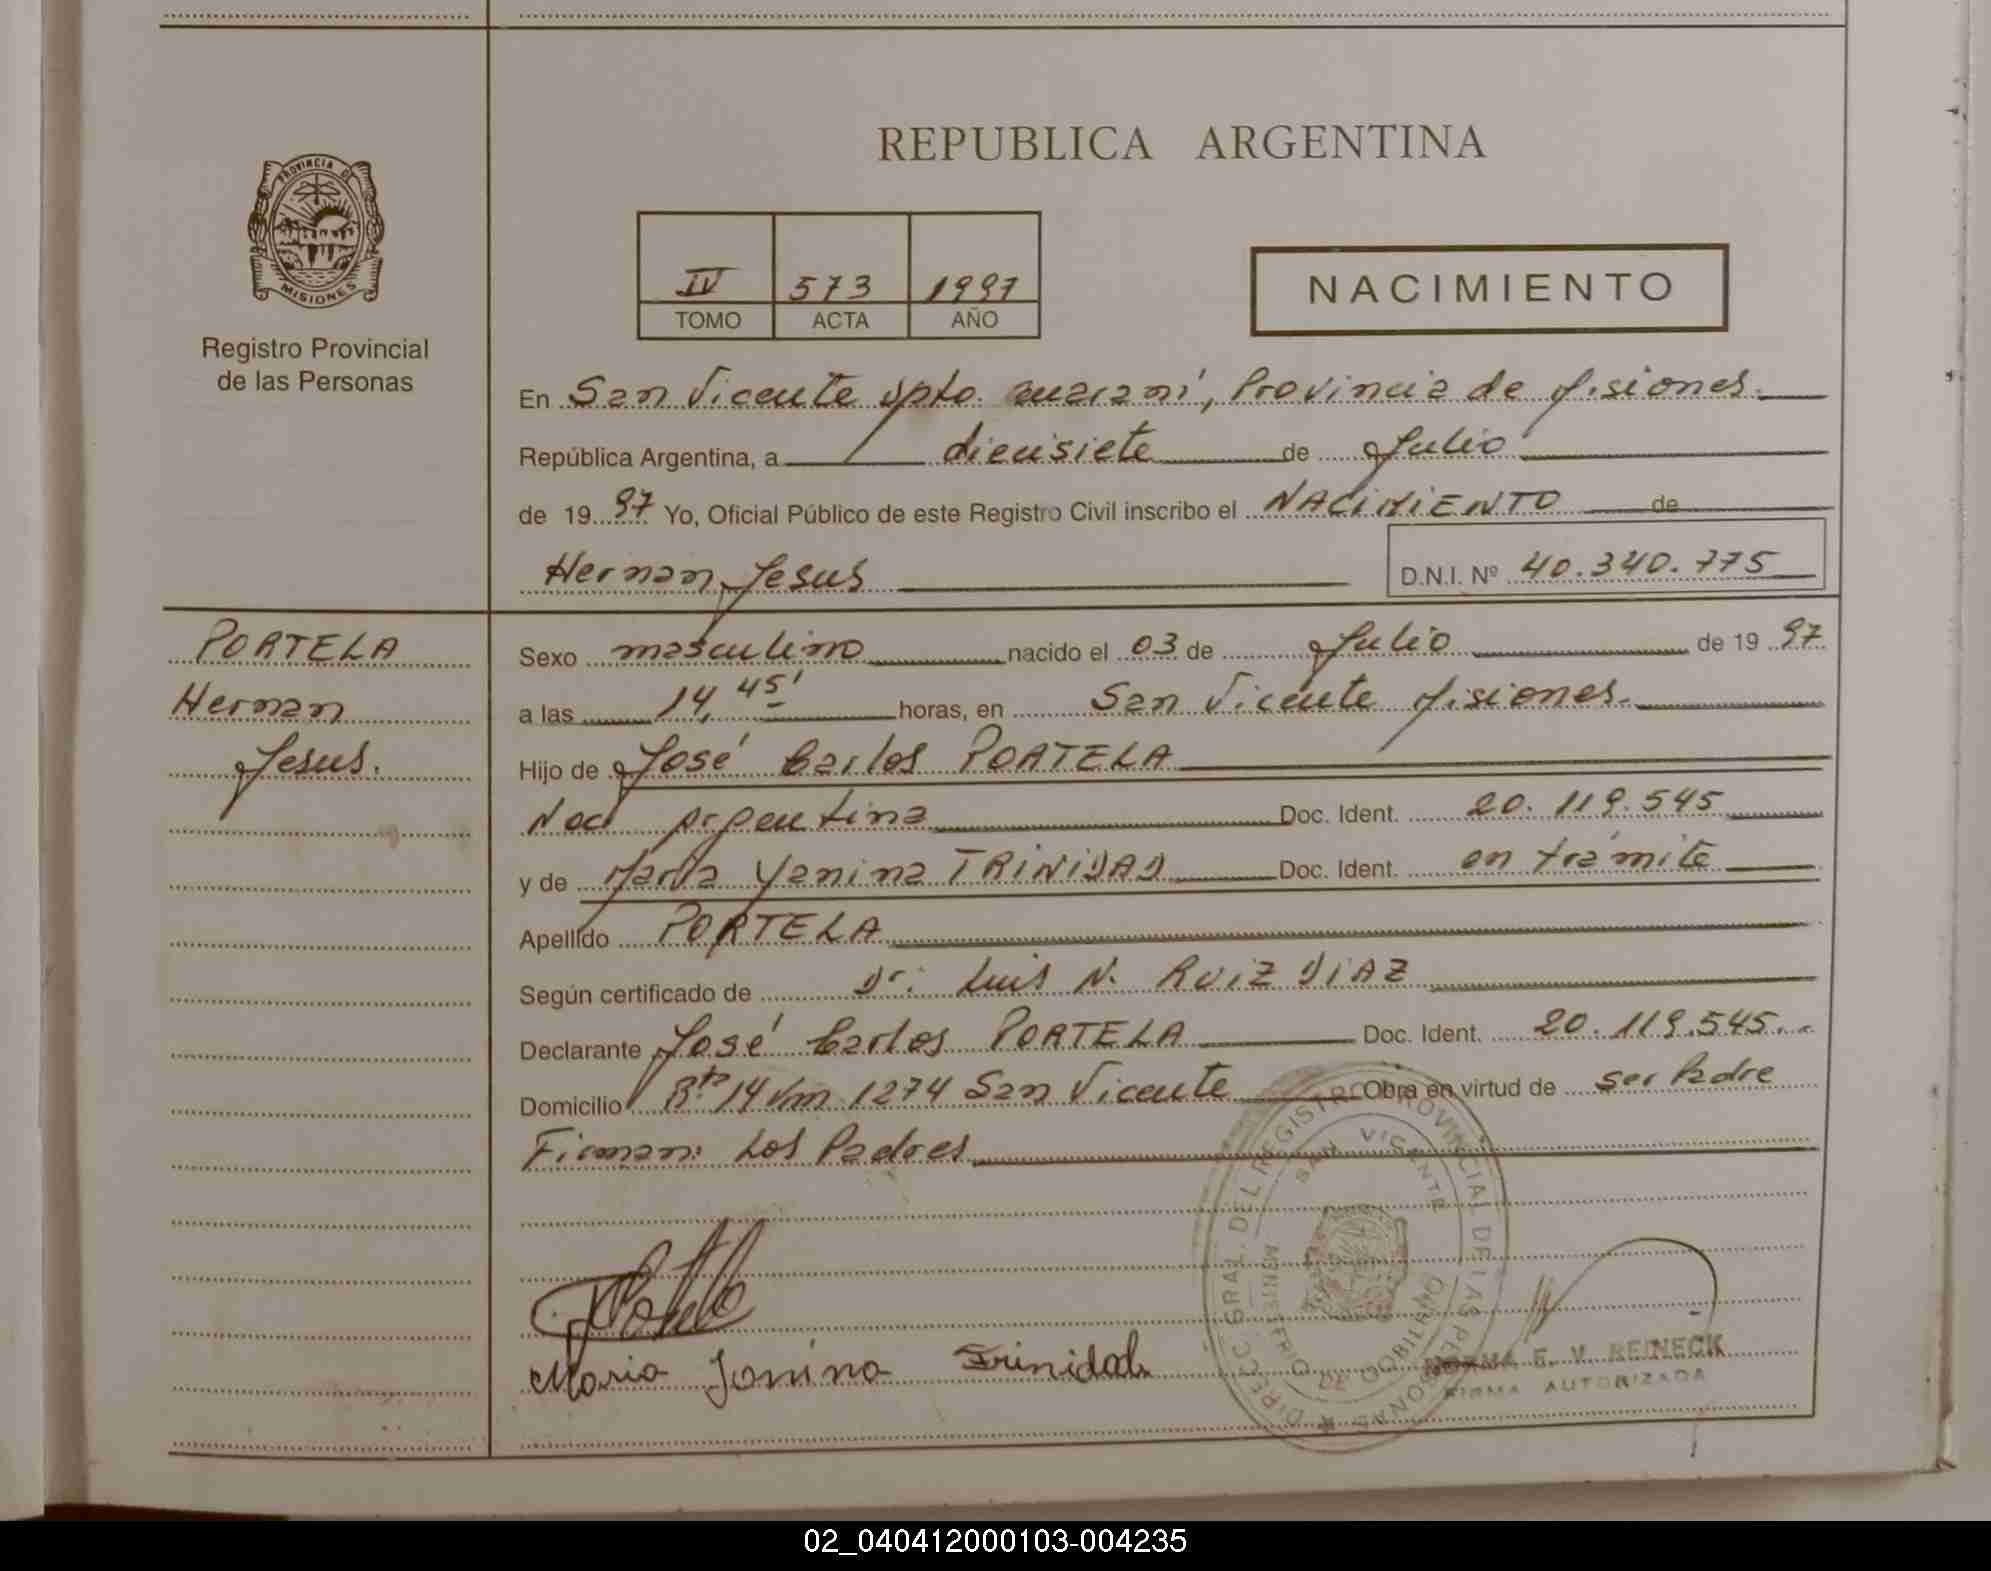 PROVINCIA DE
MISIONES
Registro Provincial
de las Personas
REPUBLICA ARGENTINA
IV 573 1997
TOMO ACTA AÑO
NACIMIENTO
En San Vicente Dpto. Guaraní, Provincia de Misiones.
República Argentina, a diecisiete de Julio
de 19 97 Yo, Oficial Público de este Registro Civil inscribo el NACIMIENTO de
Hernan Jesus D.N.I. Nº 40.340.775
PORTELA
Hernan
Jesus.
Sexo masculino nacido el 03 de Julio de 19 97
a las 14,45' horas, en San Vicente Misiones.
Hijo de José Carlos PORTELA
Nac. Argentina Doc. Ident. 20.119.545
y de María Yanina TRINIDAD Doc. Ident. en trámite
Apellido PORTELA
Según certificado de Dr: Luis N. RUIZ DIAZ
Declarante José Carlos PORTELA Doc. Ident. 20.119.545.-
Domicilio Rta 14 Km 1274 San Vicente Obra en virtud de ser Padre
Firman: Los Padres
DIRECC. GRAL. DEL REGISTRO PROVINCIAL DE LAS PERSONAS
SAN VICENTE
MINISTERIO GOBIERNO
Maria Janina Trinidad
NORMA E. V. REINECK
FIRMA AUTORIZADA
02_040412000103-004235